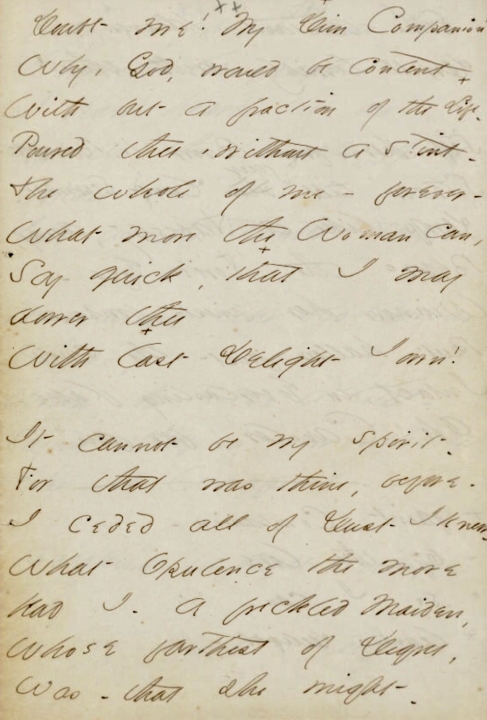 Doubt me! My Dim Companion
Why, God, would be content
With but a fraction of the Life
Poured thee, without a stint.
The whole of me - forever -
What more the Woman can,
Say quick, that I may
dower thee
With last Delight I own!
It cannot be my spirit.
For that was thine, before.
I ceded all of Dust I knew
What Opulence the more
Had I. A freckled Maiden,
Whose farthest of Degree,
Was - that she might.